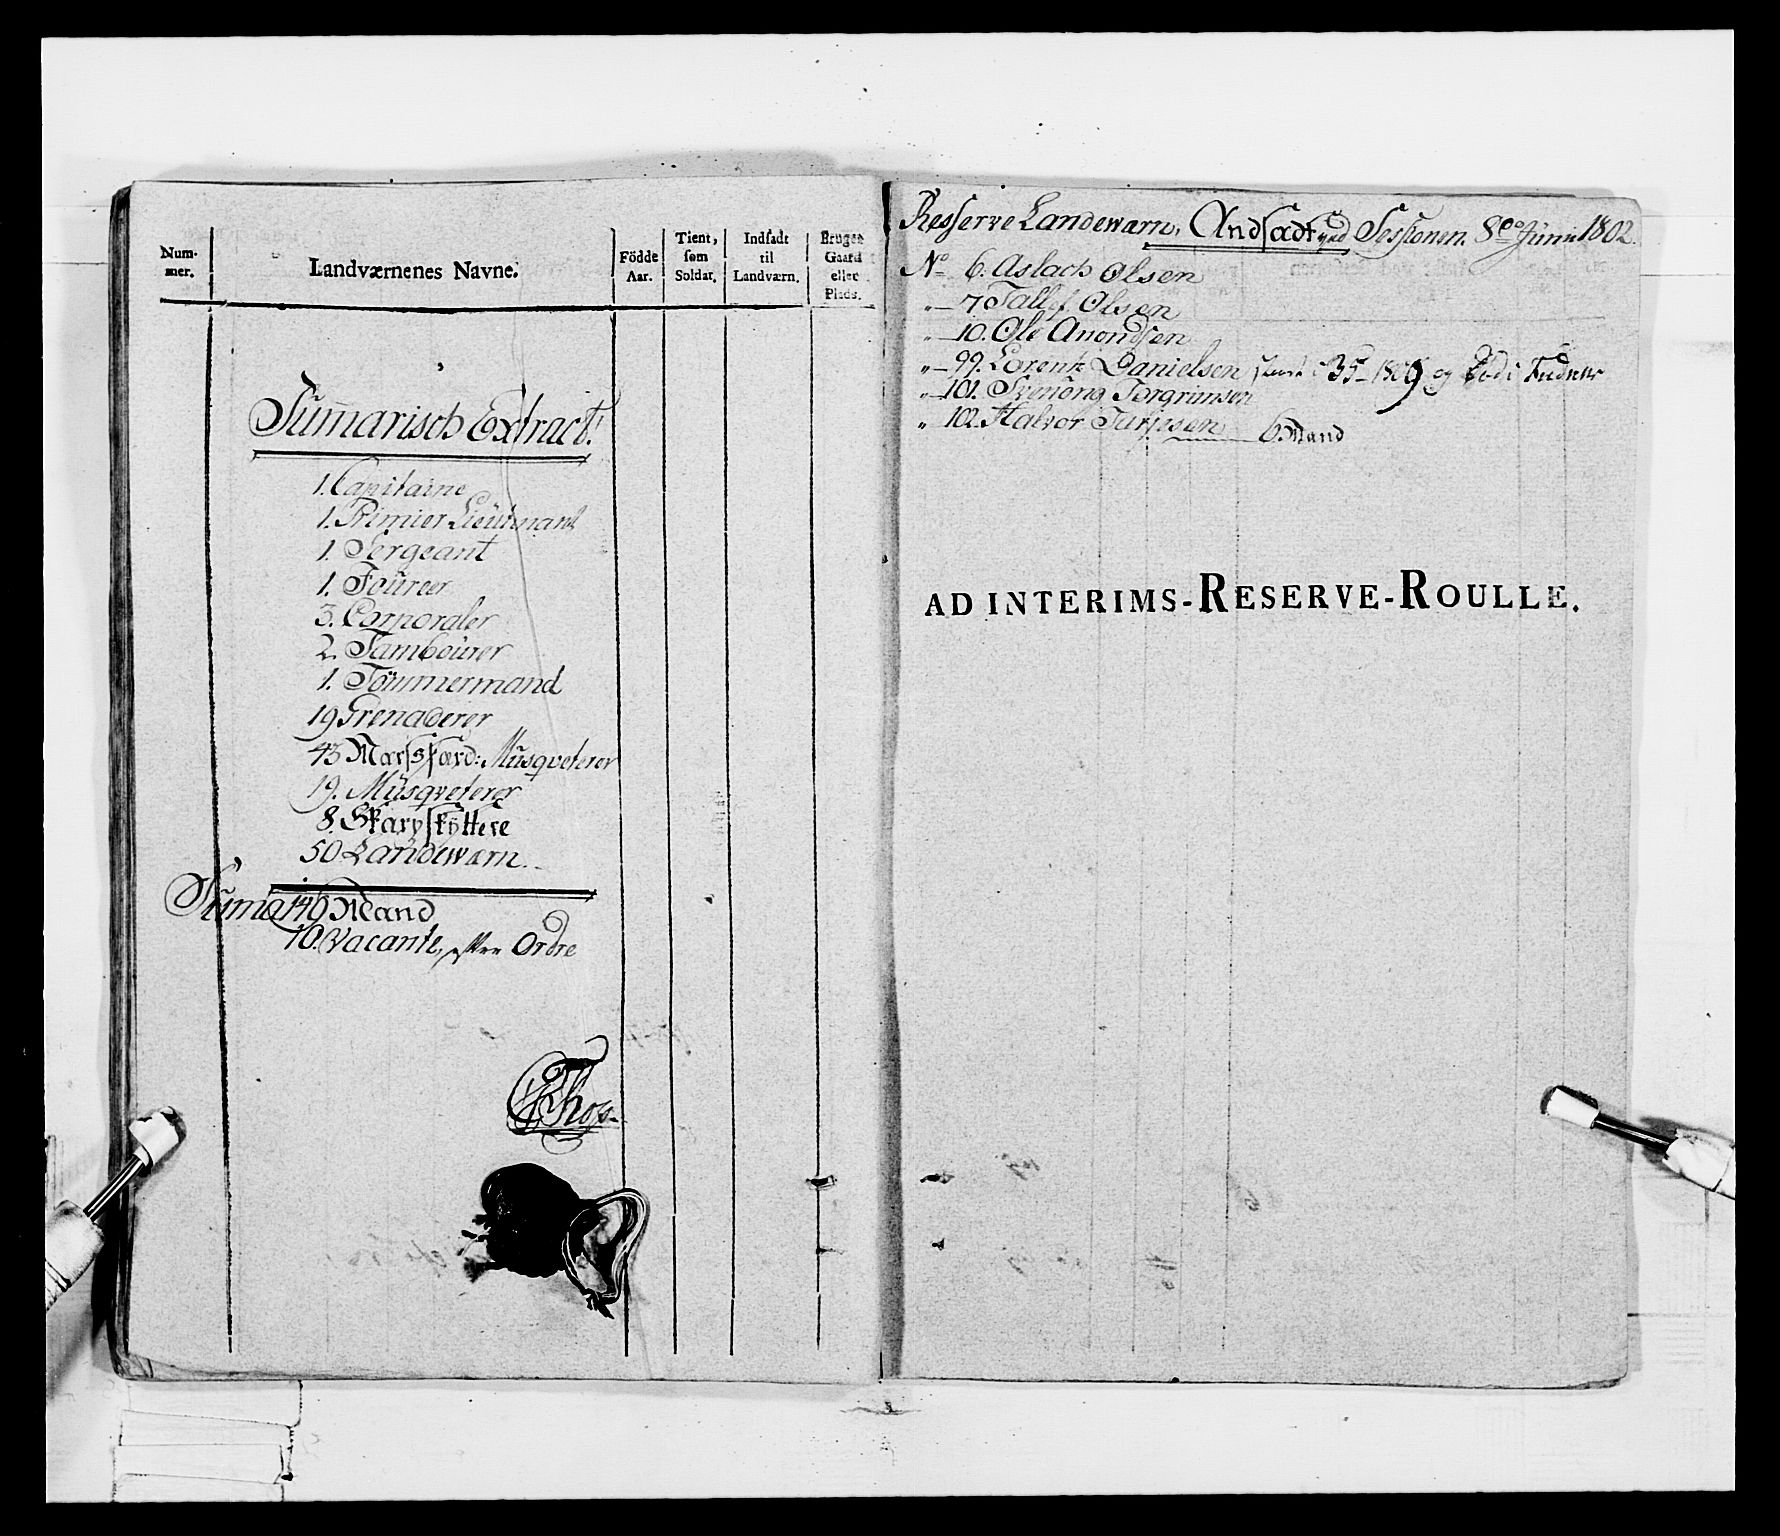 Num-
mer.
Landværnenes Navne.
Födde
Aar.
Tient,
som
Soldat.
Indsadt
til
Landværn.
Bruger
Gaard
eller
Plads.
Sum̄arisch Extract.
1. Capitaine
1. Primier Lieutnant
1. Sergeant
1. Foureer
3. Corporaler
2. Tambourer
1. Tömmermand
19 Grenaderer
43 Marsfærd: Musqveterer
19. Musqveterer
8. Skarpskyttere
50 Landewærn
Suma 146 Mand
10. Vacante, efter Ordre
Resserve Landeværn, Andsadt ved Sessionen. 8de Junii 1802
No 6. Aslach Olsen
" — 7 Tallef Olsen
" — 10. Ole Anondsen
" — 99. Lorentz Danielsen 35 - 1809 og Död i
" — 101. Svenong Torgrimsen
" 102. Halvor Turjesen — 6. Mand
AD INTERIMS-RESERVE-ROULLE.